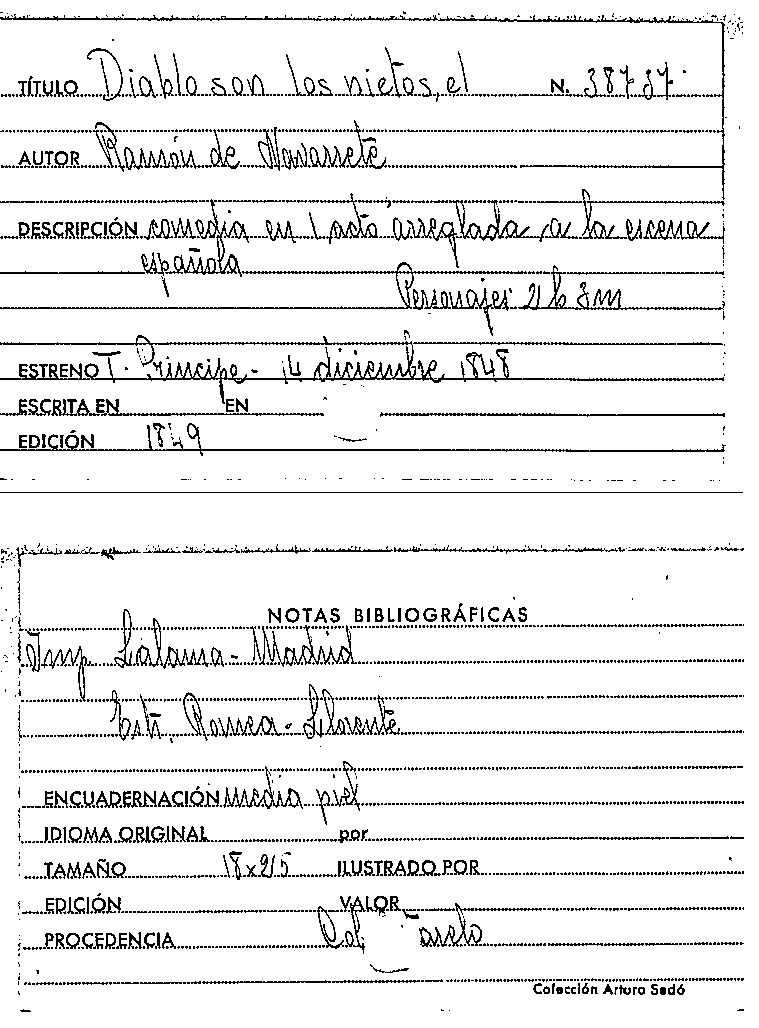 TÍTULO Diablo son los nietos, el N. 38737
AUTOR Ramón de Navarrete
DESCRIPCIÓN comedia en 1 acto arreglada a la escena
española
Personajes 2 h 3m
ESTRENO T. Principe - 14 diciembre 1848
ESCRITA EN EN
EDICIÓN 1849
NOTAS BIBLIOGRÁFICAS
Imp. Lalama - Madrid
Estr. Romea - Llorente
ENCUADERNACIÓN media piel
IDIOMA ORIGINAL por
TAMAÑO ILUSTRADO POR
EDICIÓN VALOR
PROCEDENCIA Col
Colección Arturo Sedó